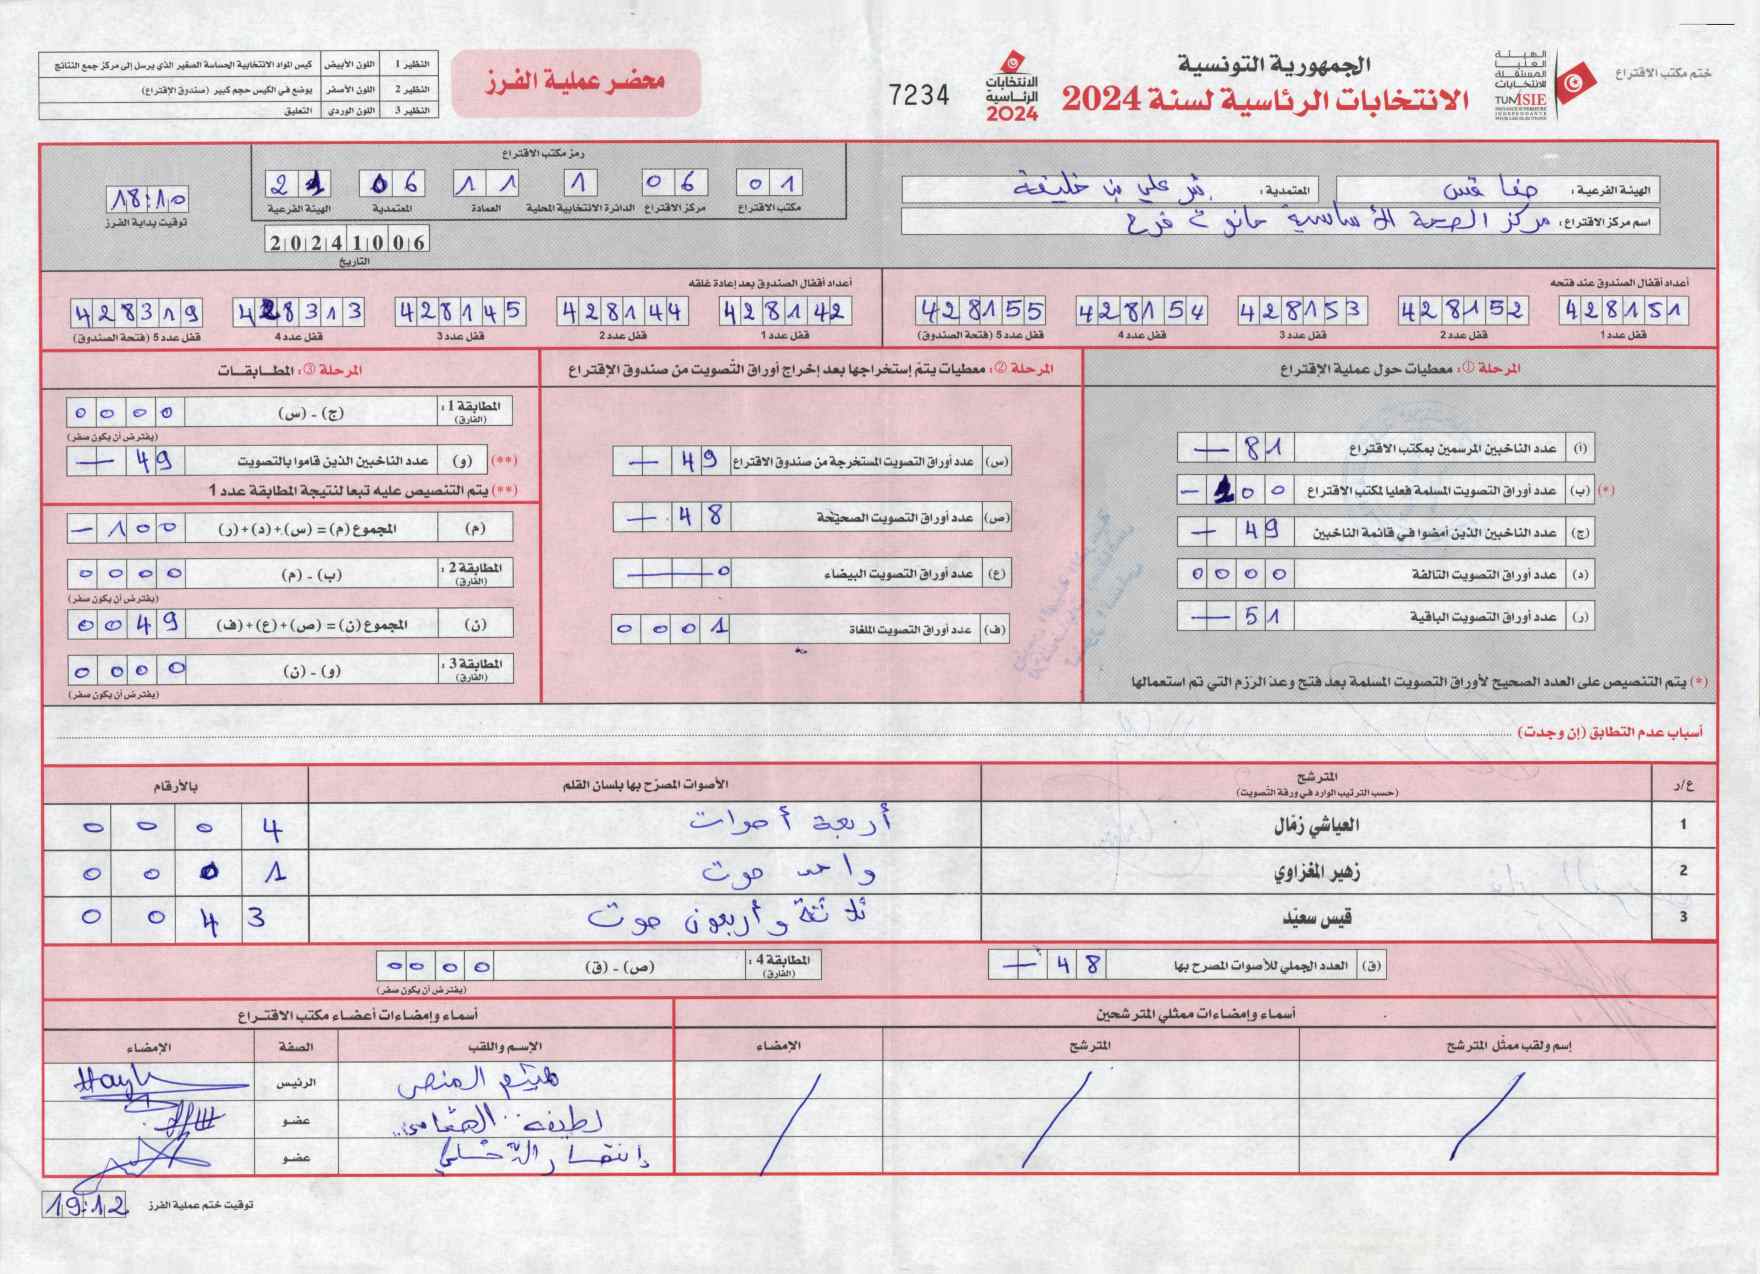 ختم مكتب الاقتراع
الهيئة
العليا
المستقلة
للانتخابات
TUNISIE
الجمهورية التونسية
الانتخابات الرئاسية لسنة 2024
الانتخابات
الرئاسية
2024
7234
محضر عملية الفرز
النظير 1 اللون الأبيض كيس المواد الانتخابية الحساسة الصغير الذي يرسل إلى مركز جمع النتائج
النظير 2 اللون الأصفر يوضع في الكيس حجم كبير (صندوق الإقتراع)
النظير 3 اللون الوردي التعليق
الهيئة الفرعية: صفاقس المعتمدية: بئر علي بن خليفة
اسم مركز الاقتراع: مركز الصحة الأساسية حانوت فرح
رمز مكتب الاقتراع
01 06 1 11 06 21
مكتب الاقتراع مركز الاقتراع الدائرة الانتخابية المحلية العمادة المعتمدية الهيئة الفرعية
20241006
التاريخ
18:10
توقيت بداية الفرز
أعداد أقفال الصندوق عند فتحه
428151 428152 428153 428154 428155
قفل عدد 1 قفل عدد 2 قفل عدد 3 قفل عدد 4 قفل عدد 5 (فتحة الصندوق)
أعداد أقفال الصندوق بعد إعادة غلقه
428142 428144 428145 428313 428319
قفل عدد 1 قفل عدد 2 قفل عدد 3 قفل عدد 4 قفل عدد 5 (فتحة الصندوق)
المرحلة ①: معطيات حول عملية الإقتراع
(أ) عدد الناخبين المرسمين بمكتب الاقتراع 81 —
(*) (ب) عدد أوراق التصويت المسلمة فعليا لمكتب الاقتراع 100 —
(ج) عدد الناخبين الذين أمضوا في قائمة الناخبين 49 —
(د) عدد أوراق التصويت التالفة 0000
(ر) عدد أوراق التصويت الباقية 51 —
(*) يتم التنصيص على العدد الصحيح لأوراق التصويت المسلمة بعد فتح وعد الرزم التي تم استعمالها
المرحلة ②: معطيات يتم إستخراجها بعد إخراج أوراق التصويت من صندوق الإقتراع
(س) عدد أوراق التصويت المستخرجة من صندوق الاقتراع 49 —
(ص) عدد أوراق التصويت الصحيحة 48 —
(ع) عدد أوراق التصويت البيضاء 0 —
(ف) عدد أوراق التصويت الملغاة 0001
المرحلة ③: المطابقات
المطابقة 1: (الفارق) (ج) - (س) 0000
(يفترض أن يكون صفر)
(**) (و) عدد الناخبين الذين قاموا بالتصويت 49 —
(**) يتم التنصيص عليه تبعا لنتيجة المطابقة عدد 1
(م) المجموع (م) = (س)+(د)+(ر) 100 —
المطابقة 2: (الفارق) (ب) - (م) 0000
(يفترض أن يكون صفر)
(ن) المجموع (ن) = (ص)+(ع)+(ف) 0049
المطابقة 3: (الفارق) (و) - (ن) 0000
(يفترض أن يكون صفر)
أسباب عدم التطابق (إن وجدت)
ع/ر المترشح الأصوات المصرّح بها بلسان القلم بالأرقام
(حسب الترتيب الوارد في ورقة التصويت)
1 العياشي زمّال أربعة أصوات 0004
2 زهير المغزاوي واحد صوت 0001
3 قيس سعيّد ثلاثة وأربعون صوت 0043
(ق) العدد الجملي للأصوات المصرح بها 48 —
المطابقة 4: (الفارق) (ص) - (ق) 0000
(يفترض أن يكون صفر)
أسماء وإمضاءات ممثلي المترشحين أسماء وإمضاءات أعضاء مكتب الاقتراع
إسم ولقب ممثل المترشح المترشح الإمضاء الإسم واللقب الصفة الإمضاء
هيثم المنصر الرئيس
لطيفة عضو
إنتصار عضو
توقيت ختم عملية الفرز 19:12